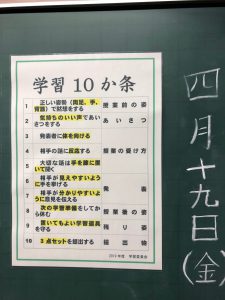 学習10か条
1 正しい姿勢(両足、手、背筋)で黙想をする 授業前の姿
2 気持ちのいい声であいさつをする あいさつ
3 発表者に体を向ける 授業の受け方
4 相手の話に反応する
5 大切な話は手を膝に置いて聞く
6 相手が見えやすいように手を挙げる 発表
7 相手が分かりやすいように意見を伝える
8 次の学習準備をしてから休む 授業後の姿
9 置いてもよい学習道具を守る
10 3点セットを提出する 提出物
2019年度 学習委員会
四月十九日(金)